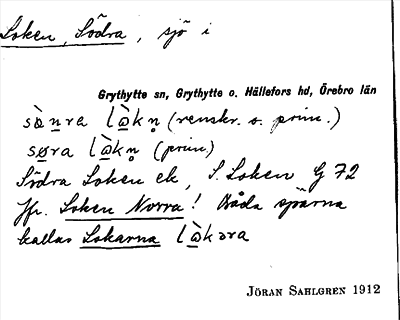 Loken, Södra, sjö i
Grythytte sn, Grythytte o. Hällefors hd, Örebro län
sø̀nra lò̱kn̥ (renskr. o. prim.)
sø̱ra lò̱kn̥ (prim.)
Södra Loken ek, S. Loken G 72
Jfr. Loken Norra! Båda sjöarna
kallas Lokarna lò̱kəra
JÖRAN SAHLGREN 1912